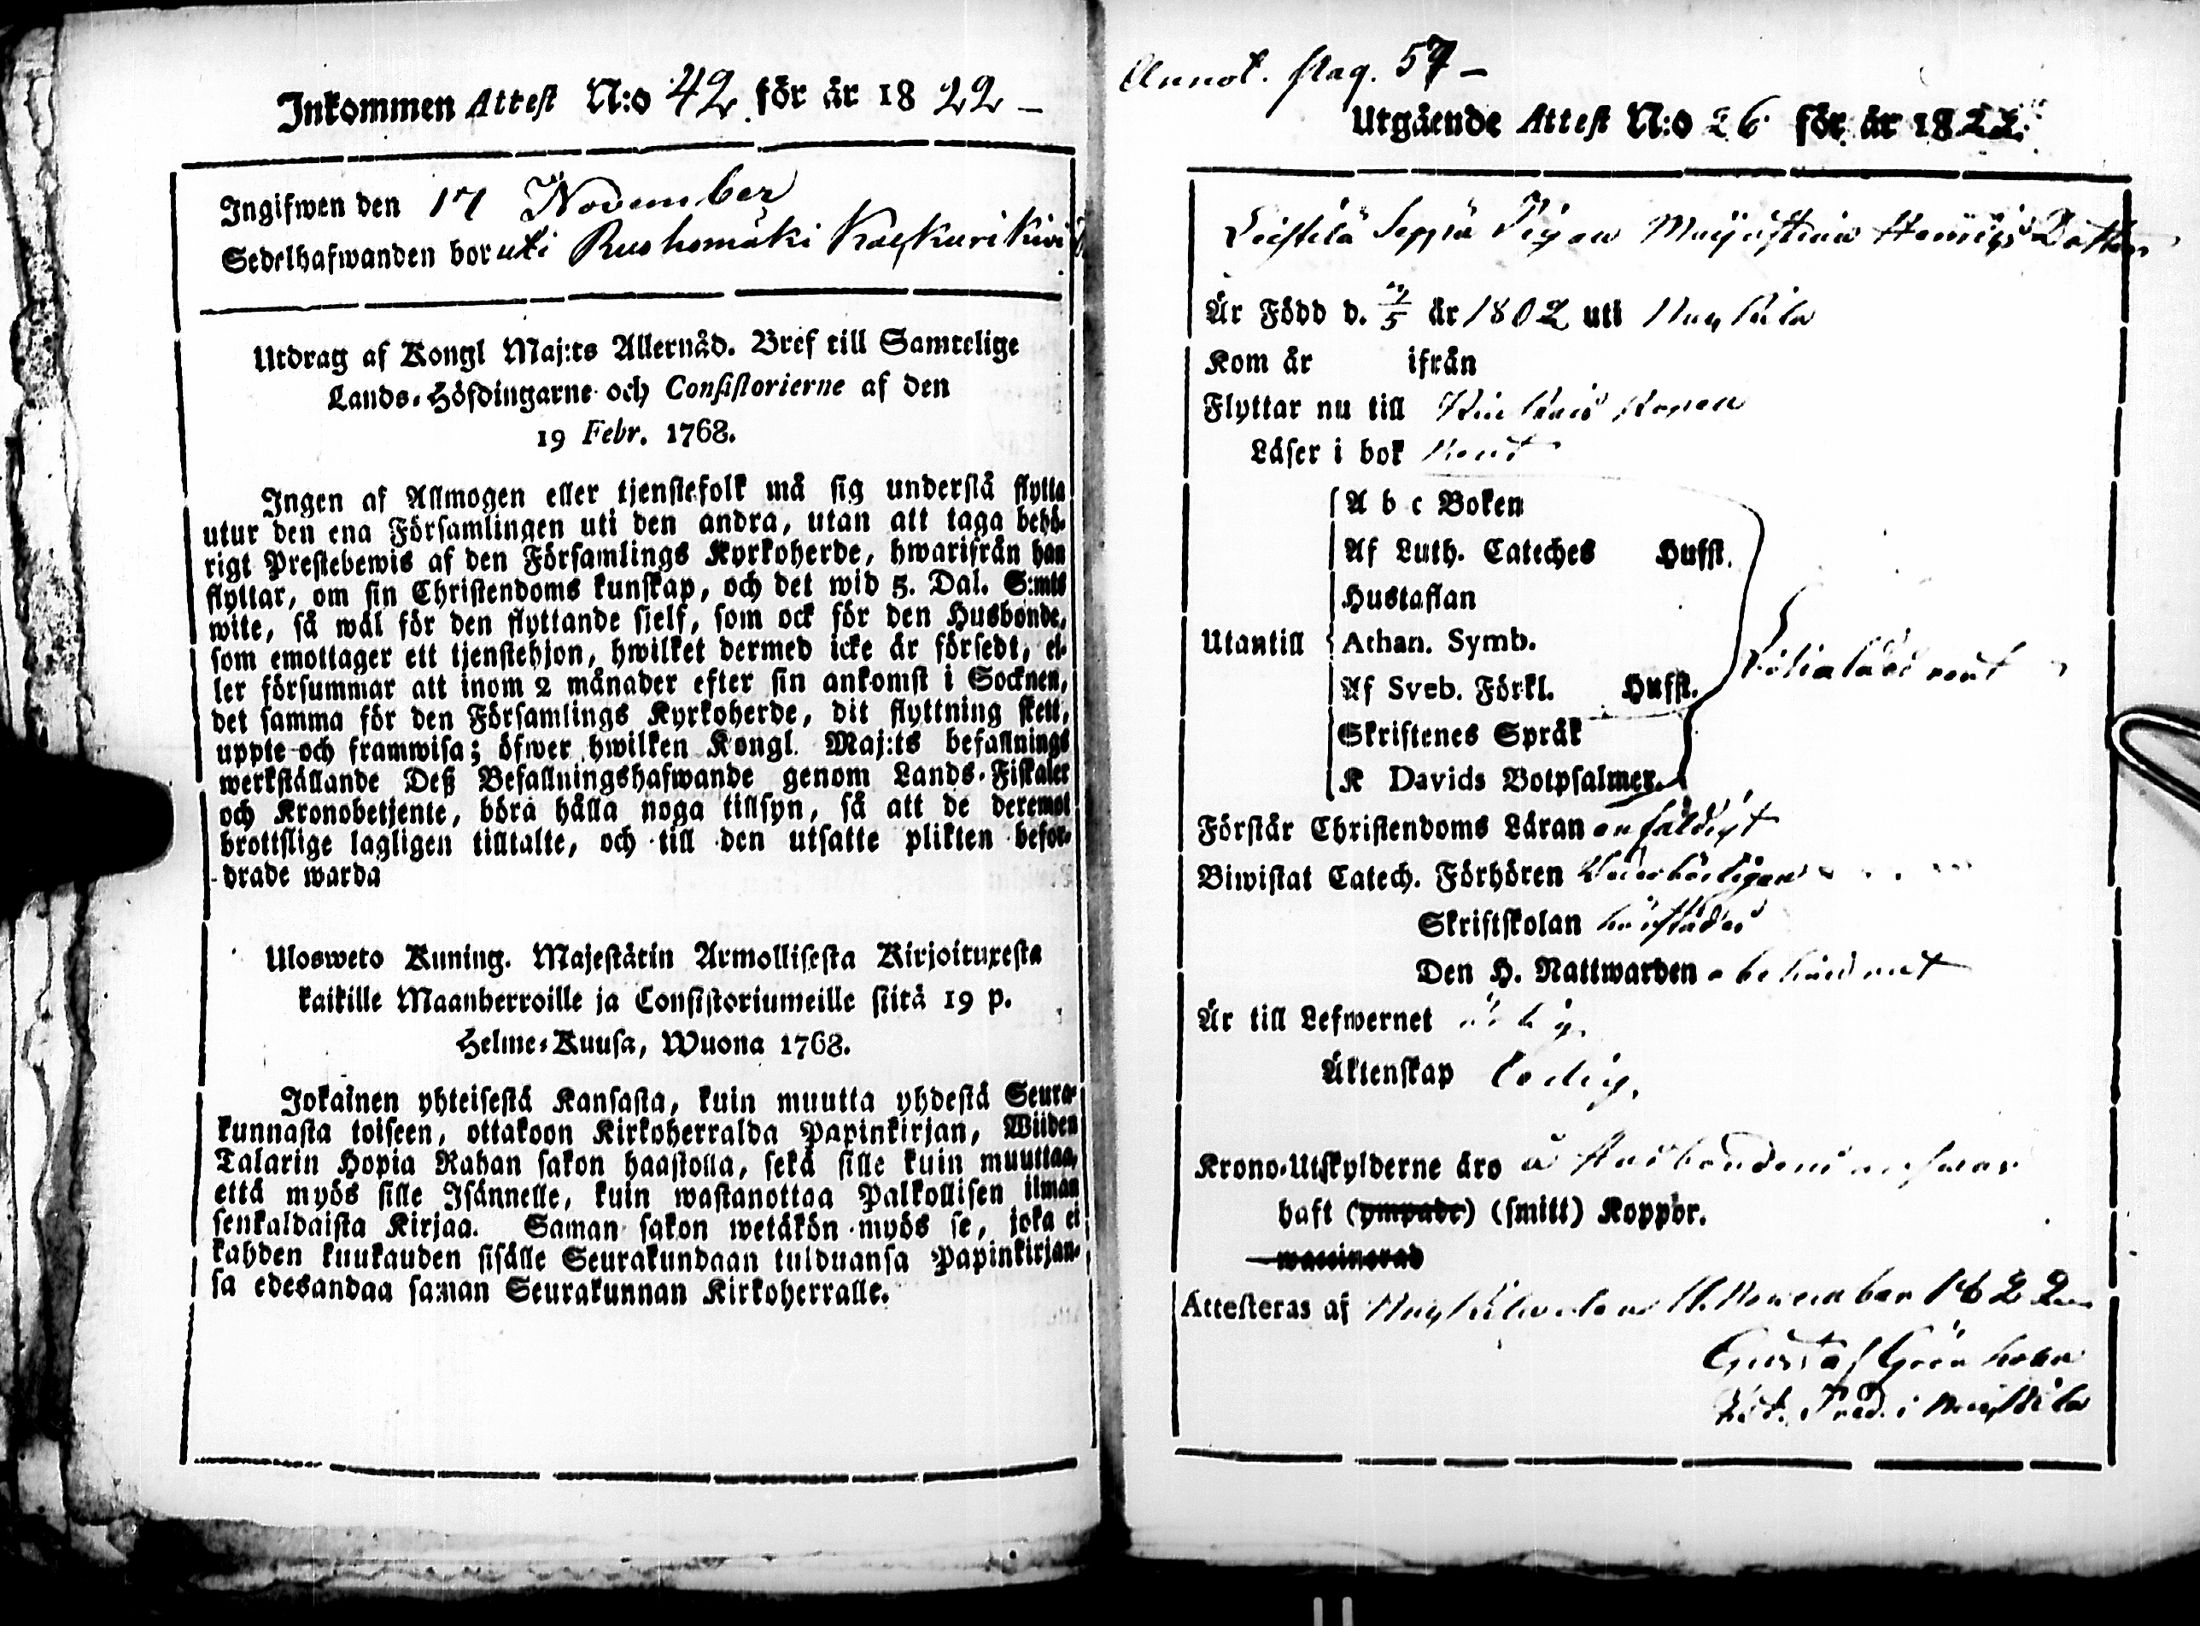 Inkommen Attest N:o 42. för år 1822 –
Ingifwen den 17 November
Sedelhafwanden bor uti Ruohomäki
Utdrag af Kongl Maj:ts Allernåd. Bref till Samtelige
Lands-Höfdingarne och Consistorierne af den
19 Febr. 1768.
Ingen af Allmogen eller tjenstefolk må sig understå flytta
utur den ena Församlingen uti den andra, utan att taga behö-
rigt Prestebewis af den Församlings Kyrkoherde, hwarifrån han
flyttar, om sin Christendoms kunskap, och det wid 5. Dal. S:mts
wite, så wäl för den flyttande sjelf, som ock för den Husbonde,
som emottager ett tjenstehjon, hwilket dermed icke är försedt, el-
ler försummar att inom 2 månader efter sin ankomst i Socknen,
det samma för den Församlings Kyrkoherde, dit flyttning skett,
uppte och framwisa; öfwer hwilken Kongl. Maj:ts befallnings
werkställande Deß Befallningshafwande genom Lands-Fiskaler
och Kronobetjente, böra hålla noga tillsyn, så att de deremot
brottslige lagligen tilltalte, och till den utsatte plikten befor-
drade warda
Ulosweto Kuning. Majestätin Armollisesta Kirjoituxesta
kaikille Maanherroille ja Consistoriumeille siitä 19 p.
Helme-Kuusa, Wuona 1768.
Jokainen yhteisestä Kansasta, kuin muutta yhdestä Seura-
kunnasta toiseen, ottakoon Kirkoherralda Papinkirjan, Wiiden
Talarin Hopia Rahan sakon haastolla, sekä sille kuin muuttaa,
että myös sille Isännelle, kuin wastanottaa Palkollisen ilman
senkaldaista Kirjaa. Saman sakon wetäkön myös se, joka ei
kahden kuukauden sisälle Seurakundaan tulduansa Papinkirjan-
sa edesandaa saman Seurakunnan Kirkoherralle.
Annot. pag. 57 –
Utgående Attest N:o 26 för år 1822.
Leistilä Seppä Pigan Henrics Dotter
Är Född d. /5 år 1802 uti Nousis
Kom år ifrån
Flyttar nu till
Läser i bok rent
A b c Boken
Af Luth. Cateches Hufst.
Hustaflan
Utantill Athan. Symb.
Af Sveb. Förkl. Hufst.
Skriftenes Språk
K Davids Botpsalmer.
Förstår Christendoms Läran enfaldigt
Biwistat Catech. Förhören Wederbörligen
Skriftskolan
Den H. Nattwarden obehindrat
Är till Lefwernet ärlig.
Äktenskap Ledig.
Krono-Utskylderne äro å Husbondens answar
haft (ympade) (smitt) Koppor.
waccinerad
Attesteras af November 1822
Gustaf Grönholm